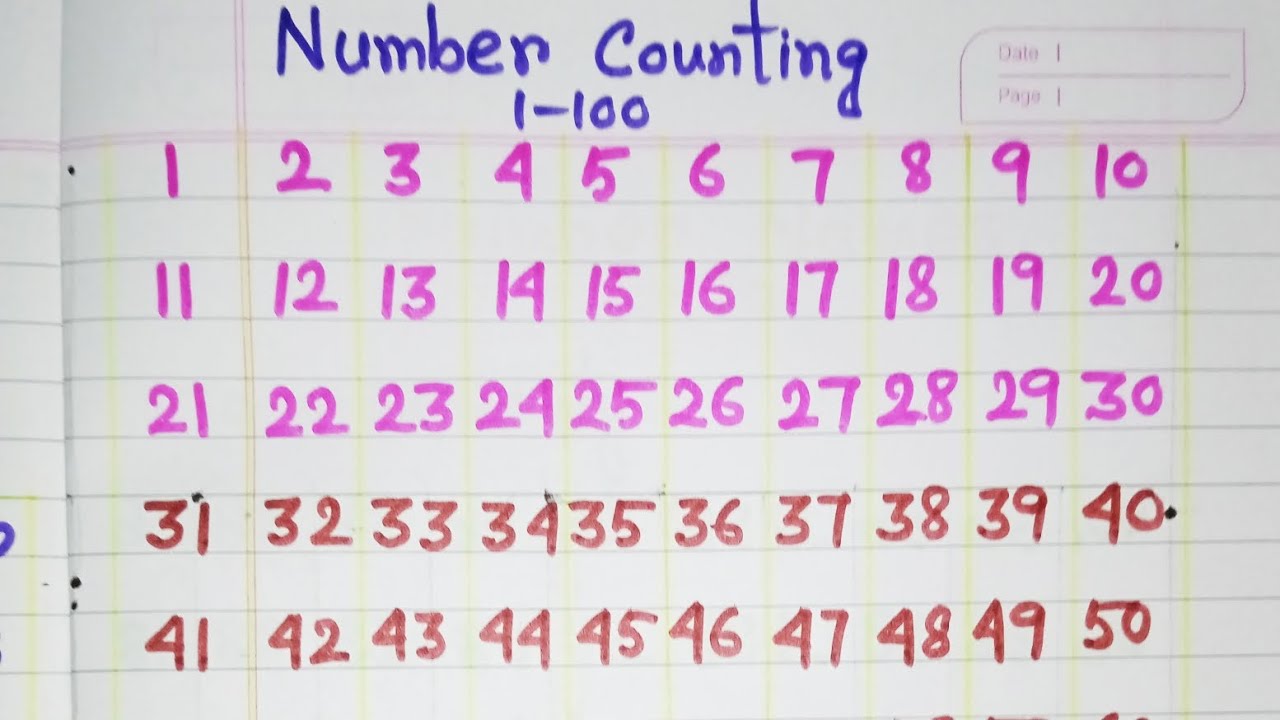 Number Counting
Date
Page
1-100
1 2 3 4 5 6 7 8 9 10
11 12 13 14 15 16 17 18 19 20
21 22 23 24 25 26 27 28 29 30
31 32 33 34 35 36 37 38 39 40
41 42 43 44 45 46 47 48 49 50